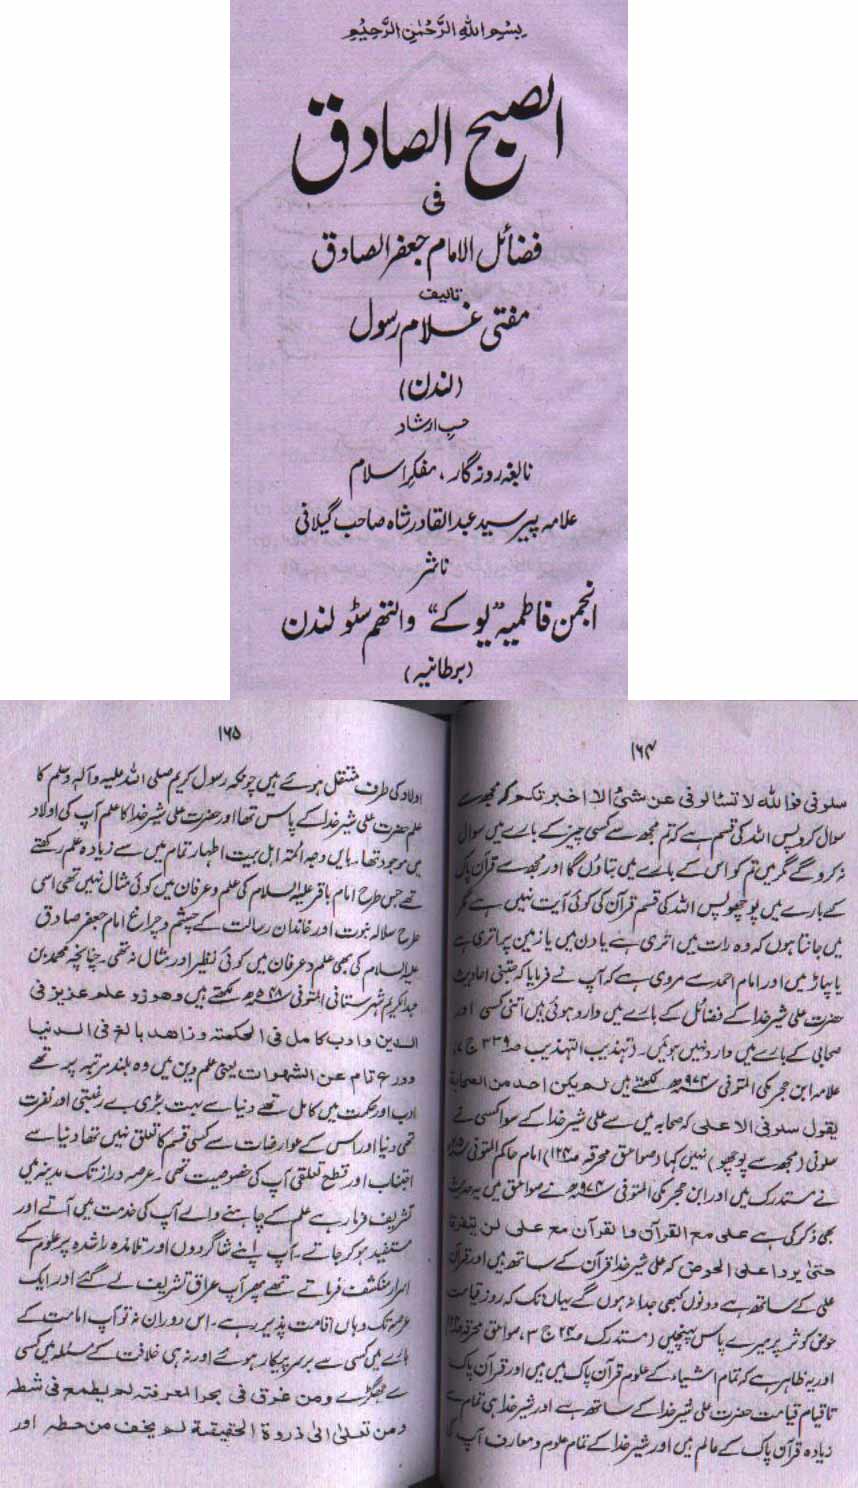 بسم الله الرحمن الرحیم
الصبح الصادق
فی
فضائل الامام جعفر الصادق
تالیف
مفتی غلام رسول
(لندن)
حسب ارشاد
نابغہ روزگار، مفکر اسلام
علامہ پیر سید عبدالقادر شاہ صاحب گیلانی
ناشر
انجمن فاطمیہ "یو کے" والتھم سٹو لندن
(برطانیہ)
۱۶۴
سلونی فواللہ لا تسئالونی عن شئ الا اخبرتکم کہ مجھ سے
سوال کرو پس اللہ کی قسم ہے کہ تم مجھ سے کسی چیز کے بارے میں سوال
نہ کرو گے مگر میں تم کو اس کے بارے میں بتاؤں گا اور مجھ سے قرآن پاک
کے بارے میں پوچھو پس اللہ کی قسم قرآن کی کوئی آیت نہیں ہے مگر
میں جانتا ہوں کہ وہ رات میں اتری ہے یا دن میں یا زمین پر اتری ہے
یا پہاڑ میں اور امام احمد سے مروی ہے کہ آپ نے فرمایا کہ جتنی احادیث
حضرت علی شیر خدا کے فضائل کے بارے میں وارد ہوئی ہیں اتنی کسی اور
صحابی کے بارے میں وارد نہیں ہوئیں۔ (تہذیب التہذیب صـ ۳۳۹ ج ۷)
علامہ ابن حجر مکی المتوفی سنہ ۹۷۴ھ لکھتے ہیں لم یکن احد من الصحابة
یقول سلونی الا علی کہ صحابہ میں سے علی شیر خدا کے سوا کسی نے
سلونی (مجھ سے پوچھو) نہیں کہا (صواعق محرقہ صـ ۱۲۴) امام حاکم المتوفی
نے مستدرک میں اور ابن حجر مکی المتوفی سنہ ۹۷۴ھ نے صواعق میں یہ حدیث
بھی ذکر کی ہے علی مع القرآن والقرآن مع علی لن یتفرقا
حتیٰ یردا علی الحوض کہ علی شیر خدا قرآن کے ساتھ ہیں اور قرآن
علی کے ساتھ ہے دونوں کبھی جدا نہ ہوں گے یہاں تک کہ روز قیامت
حوض کوثر پر میرے پاس پہنچیں (مستدرک صـ ۱۲۴ ج ۳، صواعق محرقہ صـ ۱۲۴)
اور یہ ظاہر ہے کہ تمام اشیاء کے علوم قرآن پاک میں ہیں اور قرآن پاک
تا قیام قیامت حضرت علی شیر خدا کے ساتھ ہے اور شیر خدا ہی تمام سے
زیادہ قرآن پاک کے عالم ہیں اور شیر خدا کے تمام علوم و معارف آپ کی
۱۶۵
اولاد کی طرف منتقل ہوئے ہیں چونکہ رسول کریم صلی اللہ علیہ وآلہ وسلم کا
علم حضرت علی شیر خدا کے پاس تھا اور حضرت علی شیر خدا کا علم آپ کی اولاد
میں موجود تھا۔ بایں وجہ ائمہ اہل بیت اطہار تمام میں سے زیادہ علم رکھتے
تھے جس طرح امام باقر علیہ السلام کی علم و عرفان میں کوئی مثال نہیں تھی اسی
طرح سلالہ نبوت اور خاندان رسالت کے چشم و چراغ امام جعفر صادق
علیہ السلام کی بھی علم و عرفان میں کوئی نظیر اور مثال نہ تھی۔ چنانچہ محمد بن
عبدالکریم شہرستانی المتوفی سنہ ۵۴۸ھ لکھتے ہیں وھو ذو علم عزیز فی
الدین وادب کامل فی الحکمتہ وزاھد بالغ فی الدنیا
وورع تام عن الشھوات یعنی علم دین میں وہ بلند مرتبہ پر تھے
ادب اور حکمت میں کامل تھے دنیا سے بہت بڑی بے رغبتی اور نفرت
تھی دنیا اور اس کے عوارضات سے کسی قسم کا تعلق نہیں تھا دنیا سے
اجتناب اور قطع تعلقی آپ کی خصوصیت تھی۔ عرصہ دراز تک مدینہ میں
تشریف فرما رہے علم کے چاہنے والے آپ کی خدمت میں آتے اور
مستفید ہو کر جاتے۔ آپ اپنے شاگردوں اور تلامذہ راشدہ پر علوم کے
اسرار منکشف فرماتے تھے پھر آپ عراق تشریف لے گئے اور ایک
عرصہ تک وہاں اقامت پذیر رہے۔ اس دوران نہ تو آپ امامت کے
بارے میں کسی سے برسر پیکار ہوئے اور نہ ہی خلافت کے مسئلہ میں کسی
سے جھگڑے ومن غرق فی بحر المعرفتہ لم یطمع فی شطہ
ومن تعلیٰ الیٰ ذروة الحقیقیة لم یخف من حطہ اور